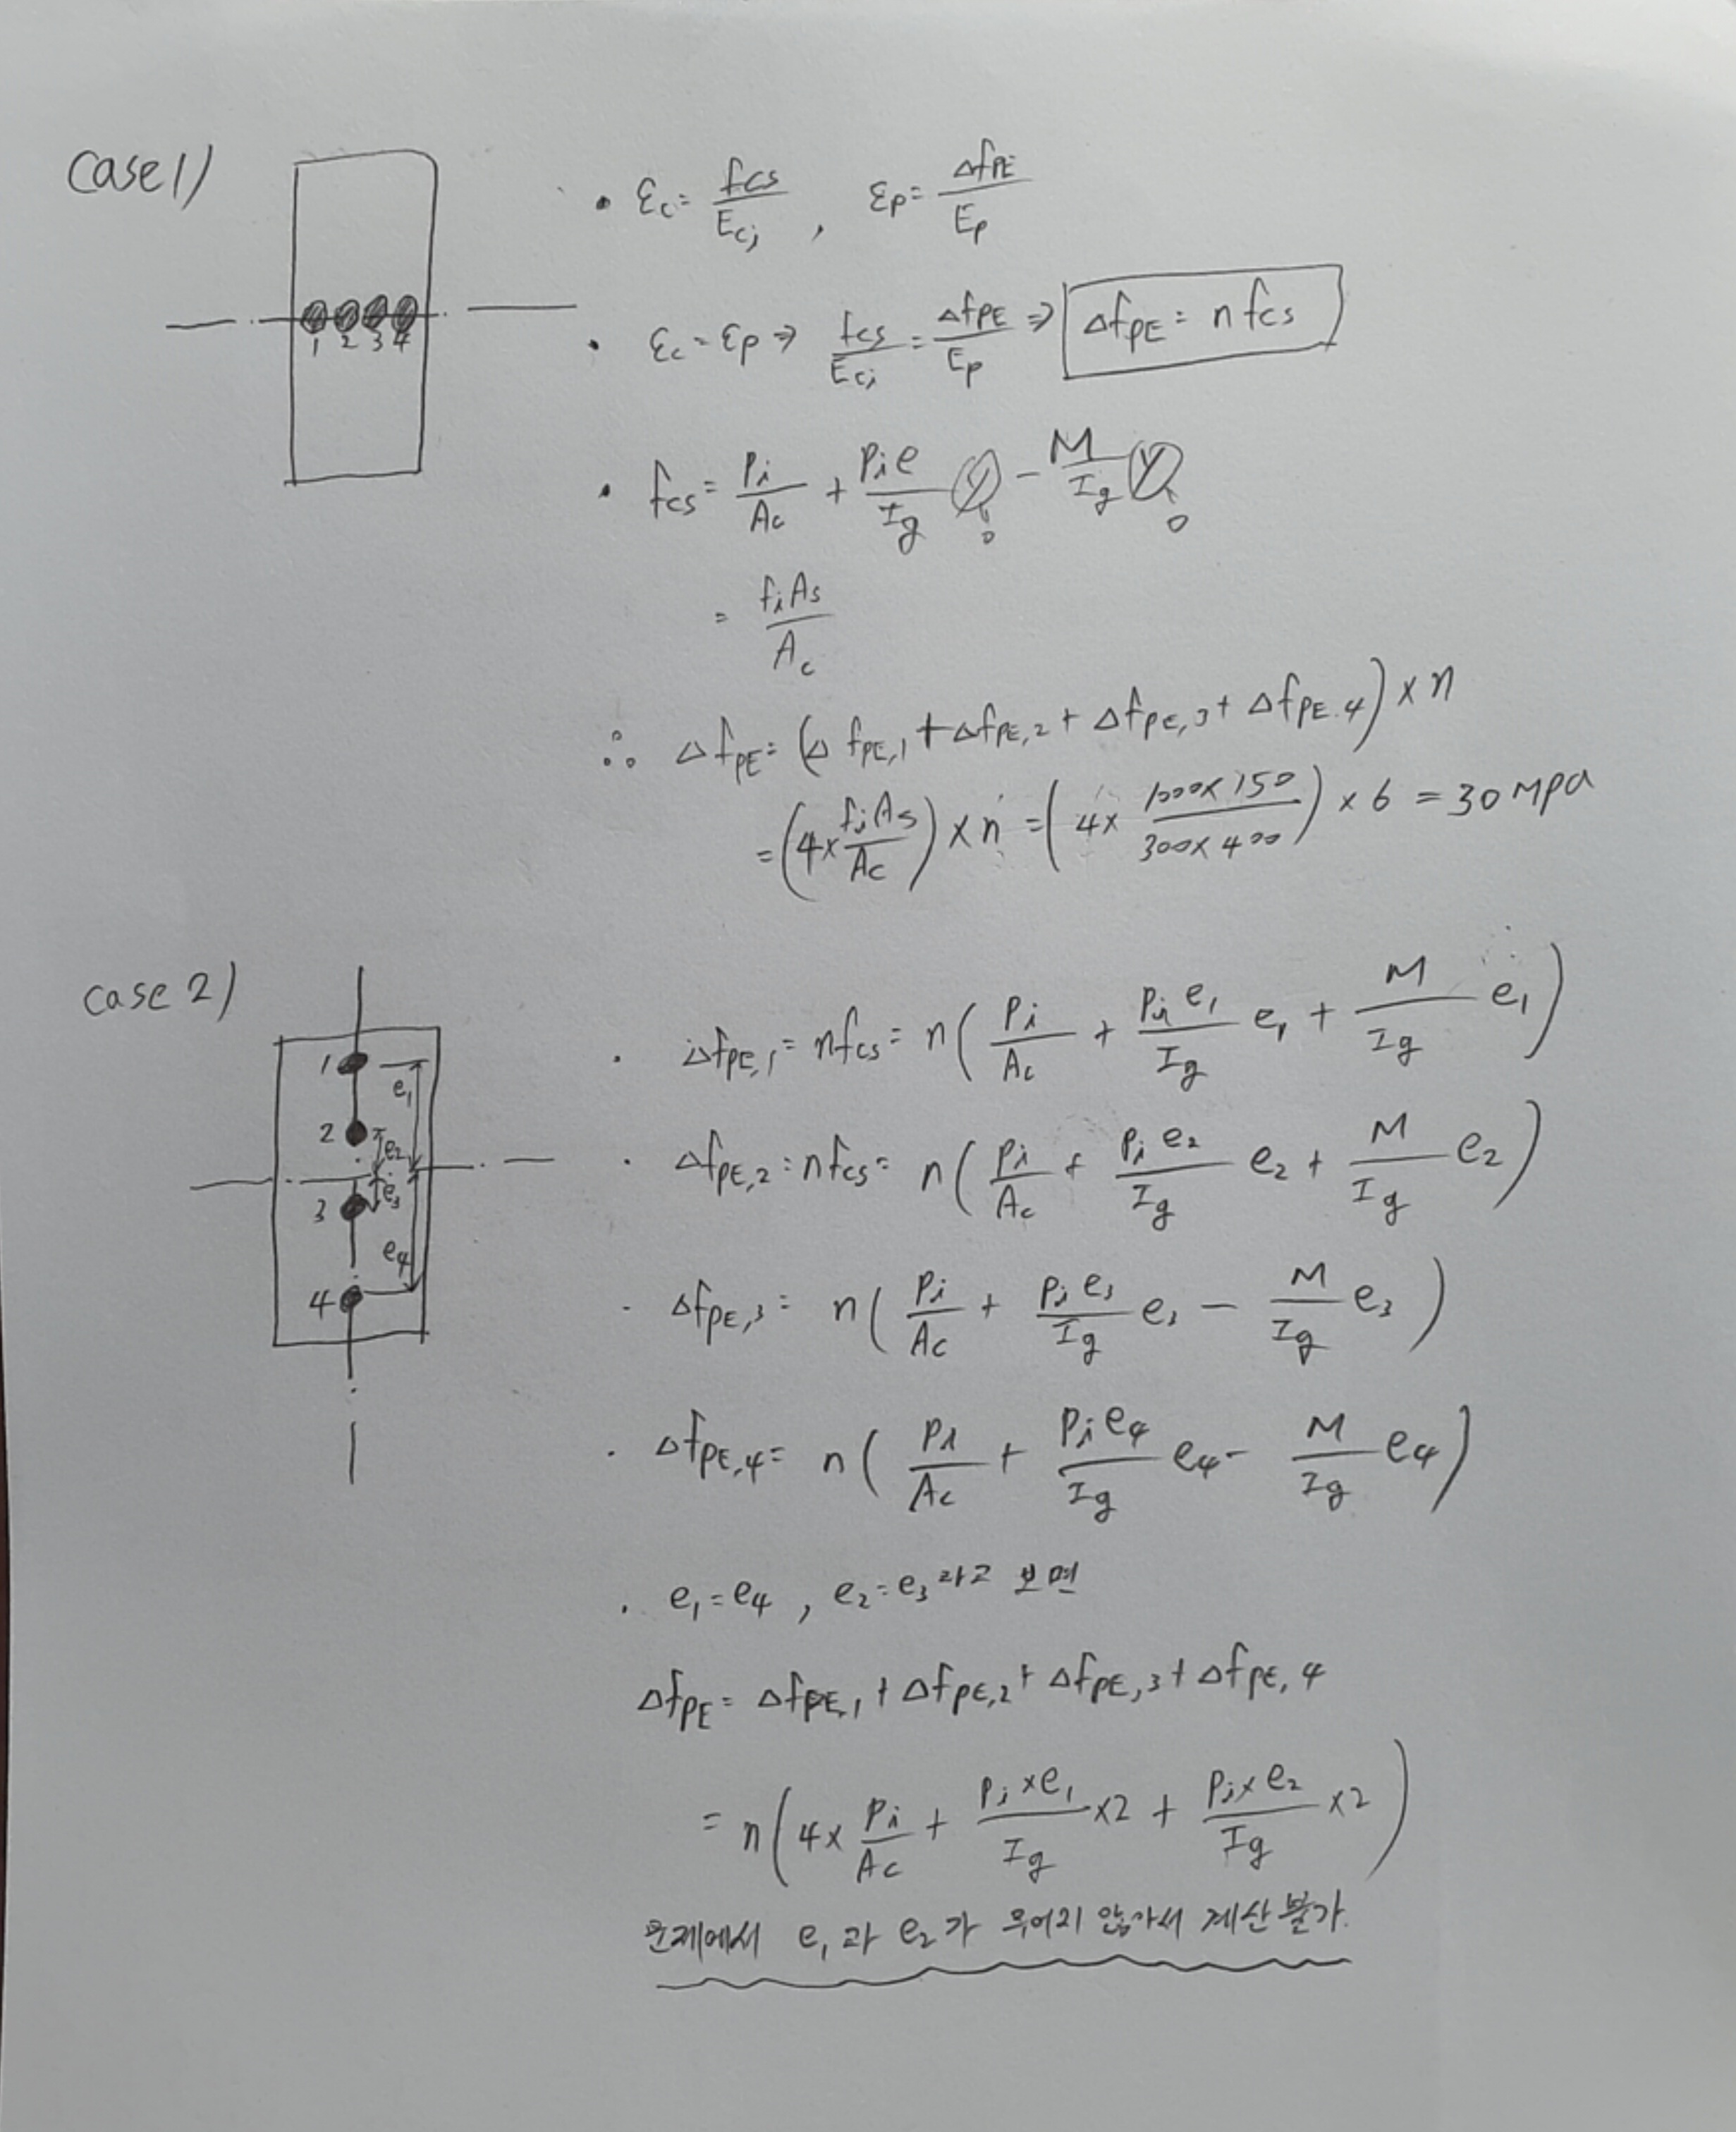 case 1)
1 2 3 4
• εc = fcs/Ecj , εp = ΔfPE/Ep
• εc = εp ⇒ fcs/Eci = ΔfPE/Ep ⇒ ΔfPE = n fcs
• fcs = Pi/Ac + Pi e/Ig y - M/Ig y
0 0
= fi As/Ac
∴ ΔfPE = (ΔfPE,1 + ΔfPE,2 + ΔfPE,3 + ΔfPE.4) × n
= (4× fi As/Ac) × n = (4× 1000×150/300×400) × 6 = 30 MPa
case 2)
1 e1
2 e2
3 e3
4 e4
· ΔfPE,1 = nfcs = n( Pi/Ac + Pi e1/Ig e1 + M/Ig e1 )
· ΔfPE,2 = nfcs = n( Pi/Ac + Pi e2/Ig e2 + M/Ig e2 )
· ΔfPE,3 = n( Pi/Ac + Pi e3/Ig e3 - M/Ig e3 )
· ΔfPE,4 = n( Pi/Ac + Pi e4/Ig e4 - M/Ig e4 )
· e1 = e4 , e2 = e3 라고 보면
ΔfPE = ΔfPE,1 + ΔfPE,2 + ΔfPE,3 + ΔfPE,4
= n( 4× Pi/Ac + Pi×e1/Ig ×2 + Pi×e2/Ig ×2 )
문제에서 e1과 e2가 주어지 않아서 계산불가.